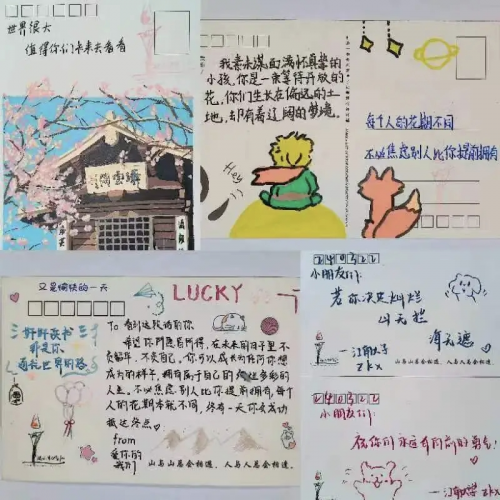 世界很大
值得你们去看看
我素未谋面满怀真挚的
小孩,你是一朵等待开放的
花,你们生长在偏远的土
地,却有着辽阔的梦境。
每个人的花期不同
不必焦虑别人比你提前拥有
又是愉快的一天
LUCKY
好好读书
你
通往世界的路
To 看到这段话的你
希望你所愿皆所得,在未来的日子里不
负韶华,不负自己,你可以成为任何你想
成为的样子,拥有属于自己的绚烂多彩的
人生,不必焦虑别人比你提前拥有,每个
人的花期本就不同,终有一天你会成功
抵达终点
from
爱你的
我们
山与山总会相逢,人与人总会相逢。
小朋友们:
若你决定灿烂
山无拦
海无遮
—江南大学
zkx
山与山总会相逢,人与人总会相逢。
小朋友们:
祝你们永远有向前的勇气!
—江南大学 zkx
山与山总会相逢,人与人总会相逢。